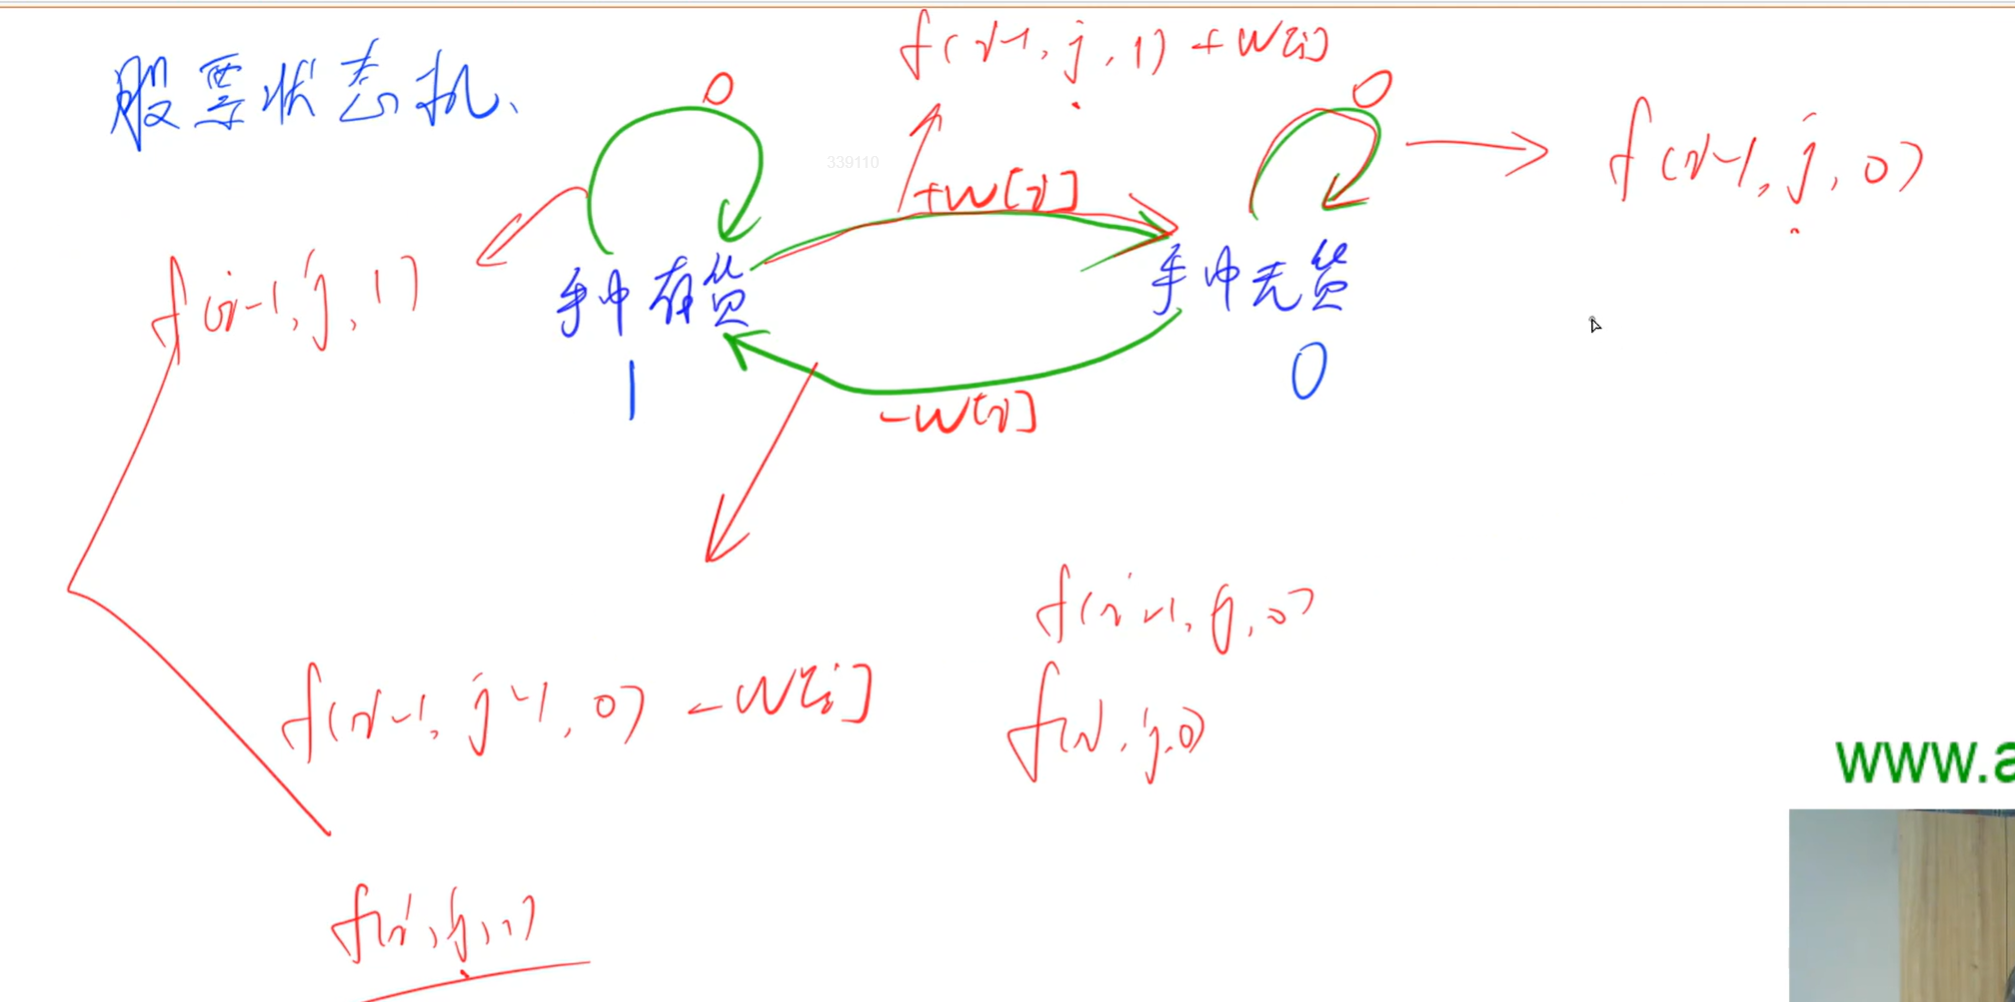 股票状态机、
f(i-1, j, 1) + w[i]
0
0
339110
+w[i]
f(i-1, j, 0)
f(i-1, j, 1)
手中有货
手中无货
1
0
-w[i]
f(i-1, j, 0)
f(i-1, j-1, 0) - w[i]
f(i, j, 0)
www.a
f(i, j, 1)